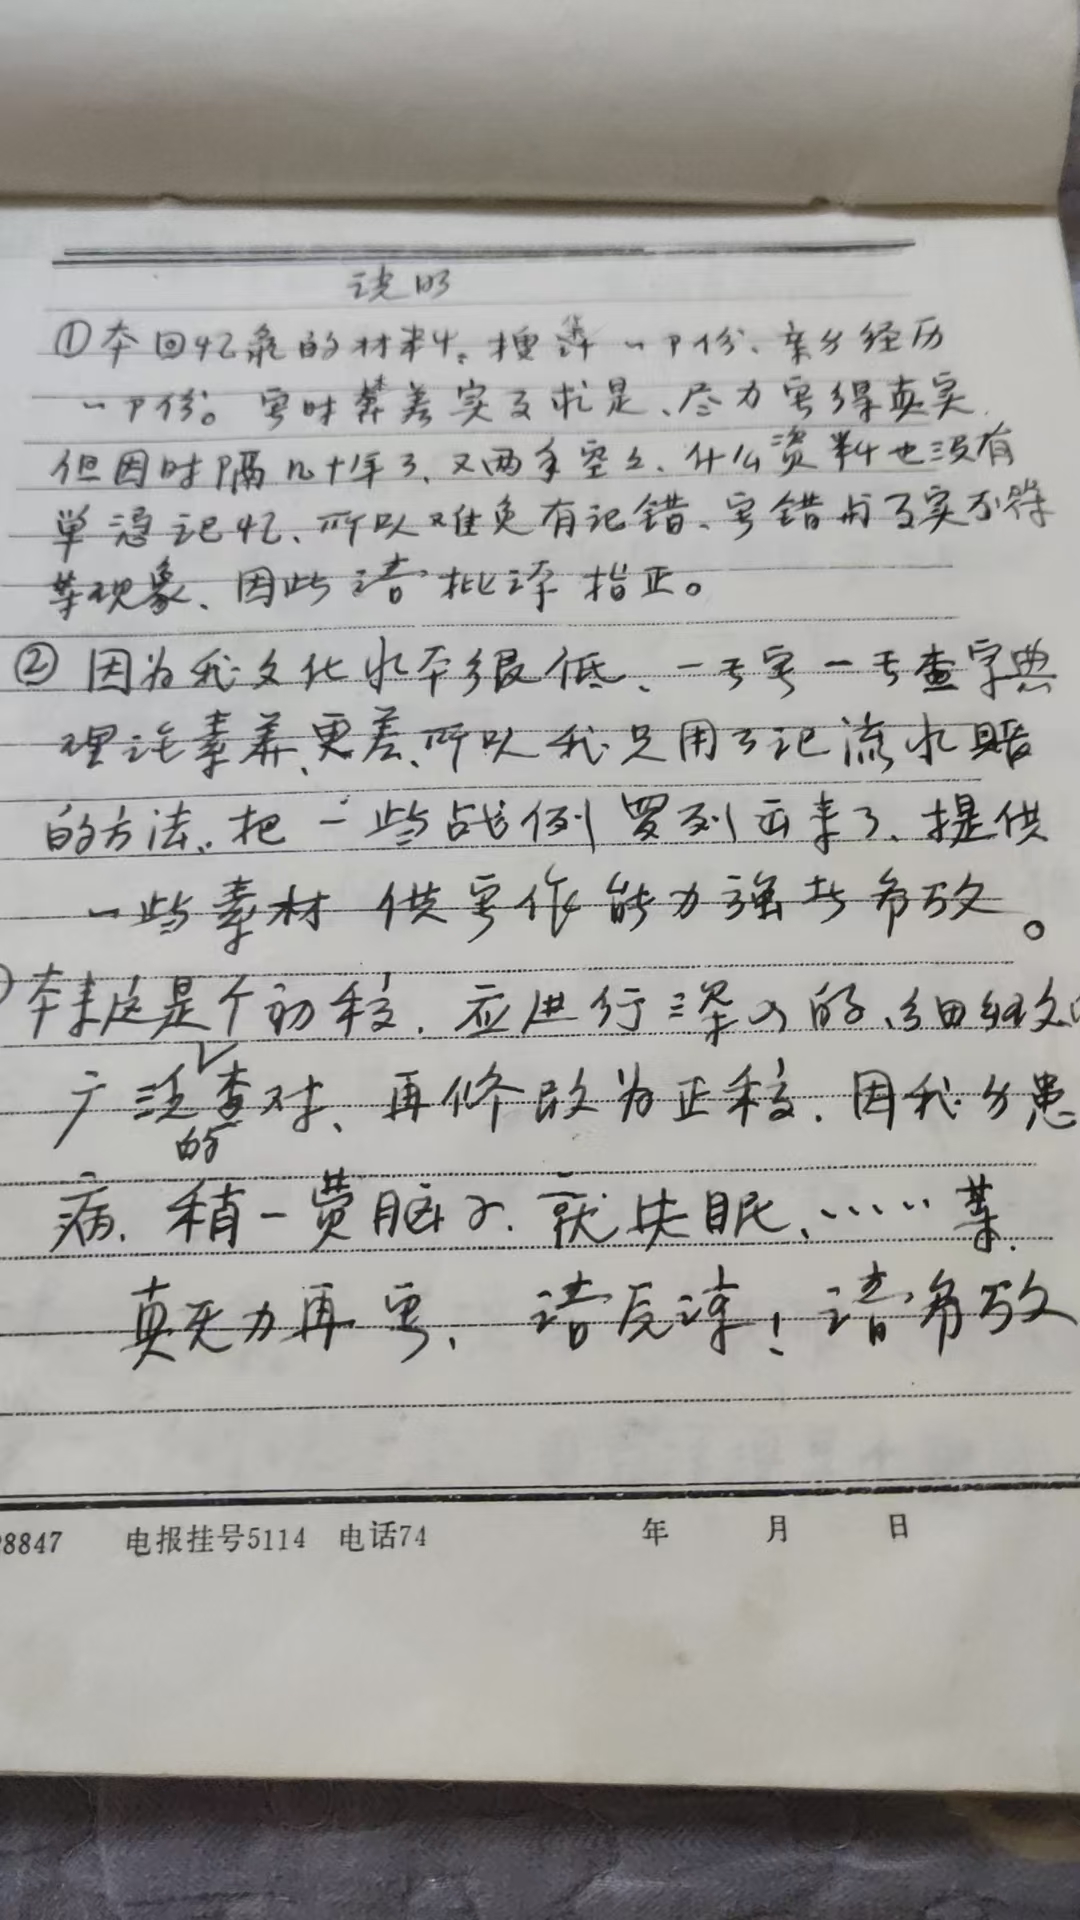 说明
①本回忆录的材料、搜集一部份、亲身经历
一部份。写时禀着实事求是、尽力写得真实
但因时隔几十年了、又两手空空、什么资料也没有
单凭记忆、所以难免有记错、写错与事实不符
等现象、因此请批评指正。
② 因为我文化水平很低、一手写一手查字典
理论素养、更差、所以我只用了记流水账
的方法、把一些战例罗列出来了、提供
一些素材 供写作能力强者修改。
本来这是个初稿、应进行深入的、细致的
广泛的查对、再修改为正稿、因我身患
病、稍一费脑子、就失眠、……等、
真无力再写、请原谅！请修改
28847 电报挂号5114 电话74 年 月 日